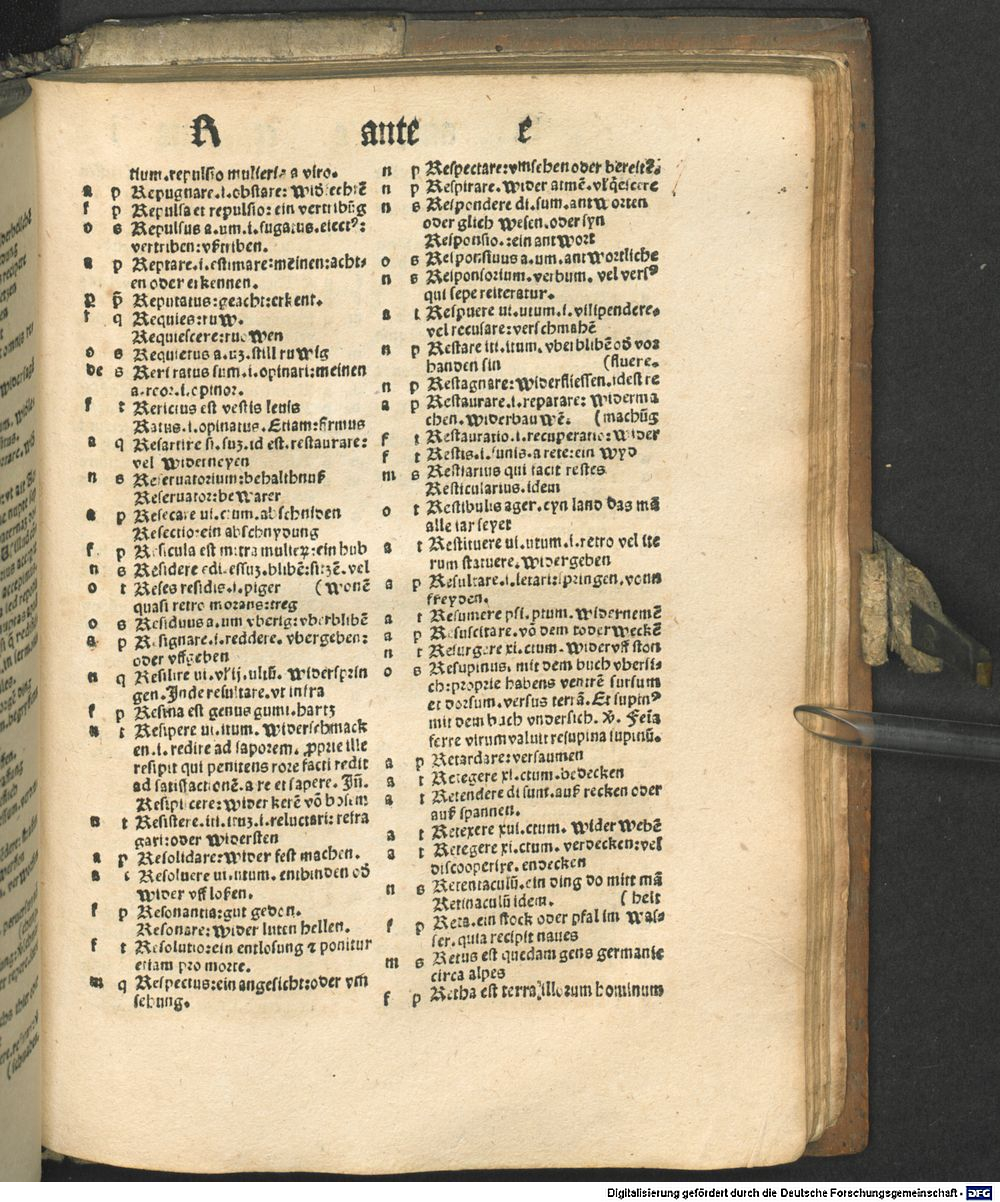 R ante e
tium.repulsio mulieris a viro.
a p Repugnare.i.obstare: widfechtē
f p Repulsa et repulsio: ein vertribūg
o s Repulsus a.um.i.fugatus.eiectꝰ:
vertriben: vßtriben.
a p Reptare.i.estimare: meinen: acht-
en oder erkennen.
p p̄ Reputatus: geacht: erkent.
f q Requies: ruw.
Requiescere: ruowen
o s Requietus a.uz.still ruwig
de s Reri ratus sum.i.opinari: meinen
a.reor.i.opinor.
f t Rericius est vestis lenis
Ratus.i.opinatus. Etiam: firmus
a q Resartire si.suz.id est.restaurare:
vel widerneyen
n s Reseruatorium: behaltnuß
Reseruator: bewarer
a p Resecare ui.ctum.abschniden
Resectio: ein abschnydung
f p Resicula est mitra mulieꝝ: ein hub
n s Residere edi.essuz.blibē: sitzē.vel
o t Reses residis.i.piger (wonē
quasi retro morans: treg
o s Residuus a.um vberig: vberblibē
a p Resignare.i.reddere. vbergeben:
oder vffgeben
n q Resilire ui.vl'ij.ultū. widersprin
gen. Inde resultare.vt infra
f p Resina est genus gumi.hartz
n t Resipere ui.itum. widerschmack
en.i.redire ad saporem. ꝓprie ille
resipit qui penitens rore facti redit
ad satisfactionē.a re et sapere. Iñ.
Resipiscere: wider kerē vō bosem
n t Resistere.iti.ituz.i.reluctari: refra
gari: oder widersten
a p Resolidare: wider fest machen.
a t Resoluere ui.utum. enthinden od̄
wider vff loßen.
f p Resonantia: gut gedon.
Resonare: wider luten hellen.
f t Resolutio: ein entlosung ⁊ ponitur
etiam pro morte.
m q Respectus: ein angesicht: oder vm̄
sehung.
n p Respectare: vmsehen oder bereitē
n p Respirare. wider atmē.
n s Respondere di.sum.antworten
oder glich wesen.oder syn
Responsio.: ein antwort
o s Responsiuus a.um.antwortliche
n s Responsorium.verbum. vel versꝰ
qui sepe reiteratur.
a t Respuere ui.utum.i.vilipendere.
vel recusare: verschmahē
n p Restare iti.itum.vberblibē od̄ vor
handen sin (fluere.
n p Restagnare: widerfliessen.idest re
a p Restaurare.i.reparare: widerma
chen.widerbauwē. (machūg
f t Restauratio.i.recuperatio: wider
f t Restis.i.funis.a rete: ein wyd
m s Restiarius qui facit restes
Resticularius.idem
o t Restibulis ager.eyn land das mā
alle iar seyet
a t Restituere ui.utum.i.retro vel ite
rum statuere.widergeben
a p Resultare.i.letari: springen.vonn
freyden.
a t Resumere psi.ptum.widernemē
a p Resuscitare.vō dem tod erweckē
n t Resurgere xi.ctum.wider vff ston
o s Resupinus. mit dem buch vbersi-
ch: proprie habens ventrē sursum
et dorsum.versus terrā. Et supinꝰ
mit dem buch vndersich. ꝟ. Feīa
ferre virum valuit resupina supinū.
a p Retardare: versaumen
a t Retegere xi.ctum.bedecken
a t Retendere di sunt.auß recken oder
auß spannen.
a t Retexere xui.ctum. wider webē
a t Retegere xi.ctum. verdecken: vel
discooperire.endecken
n s Retentaculū.ein ding do mitt mā
Retinaculū idem. (helt
f p Reta.ein stock oder pfal im was-
ser.quia recipit naues
m s Retus est quedam gens germanie
circa alpes
f p Retha est terra illorum hominum
Digitalisierung gefördert durch die Deutsche Forschungsgemeinschaft - DFG